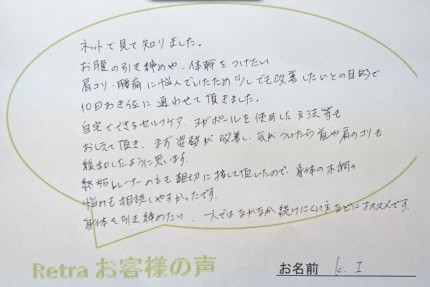 ネットで見て知りました。
お腹の引き締めや、体幹をつけたい
肩コリ・腰痛に悩んでいたため少しでも改善したいとの目的で
10日おき位に通わせて頂きました。
自宅でできるセルフケア、ヨガポールを使用した方法等も
おしえて頂き、まず姿勢が改善し、気がついたら首や肩のコリも
緩和したように思います。
終始トレーナーの方も親切に接して頂いたので、身体の不調の
悩みも相談しやすかったです。
身体を引き締めたい、一人ではなかなか続けにくい方などにオススメです。
Retra お客様の声
お名前 K. I